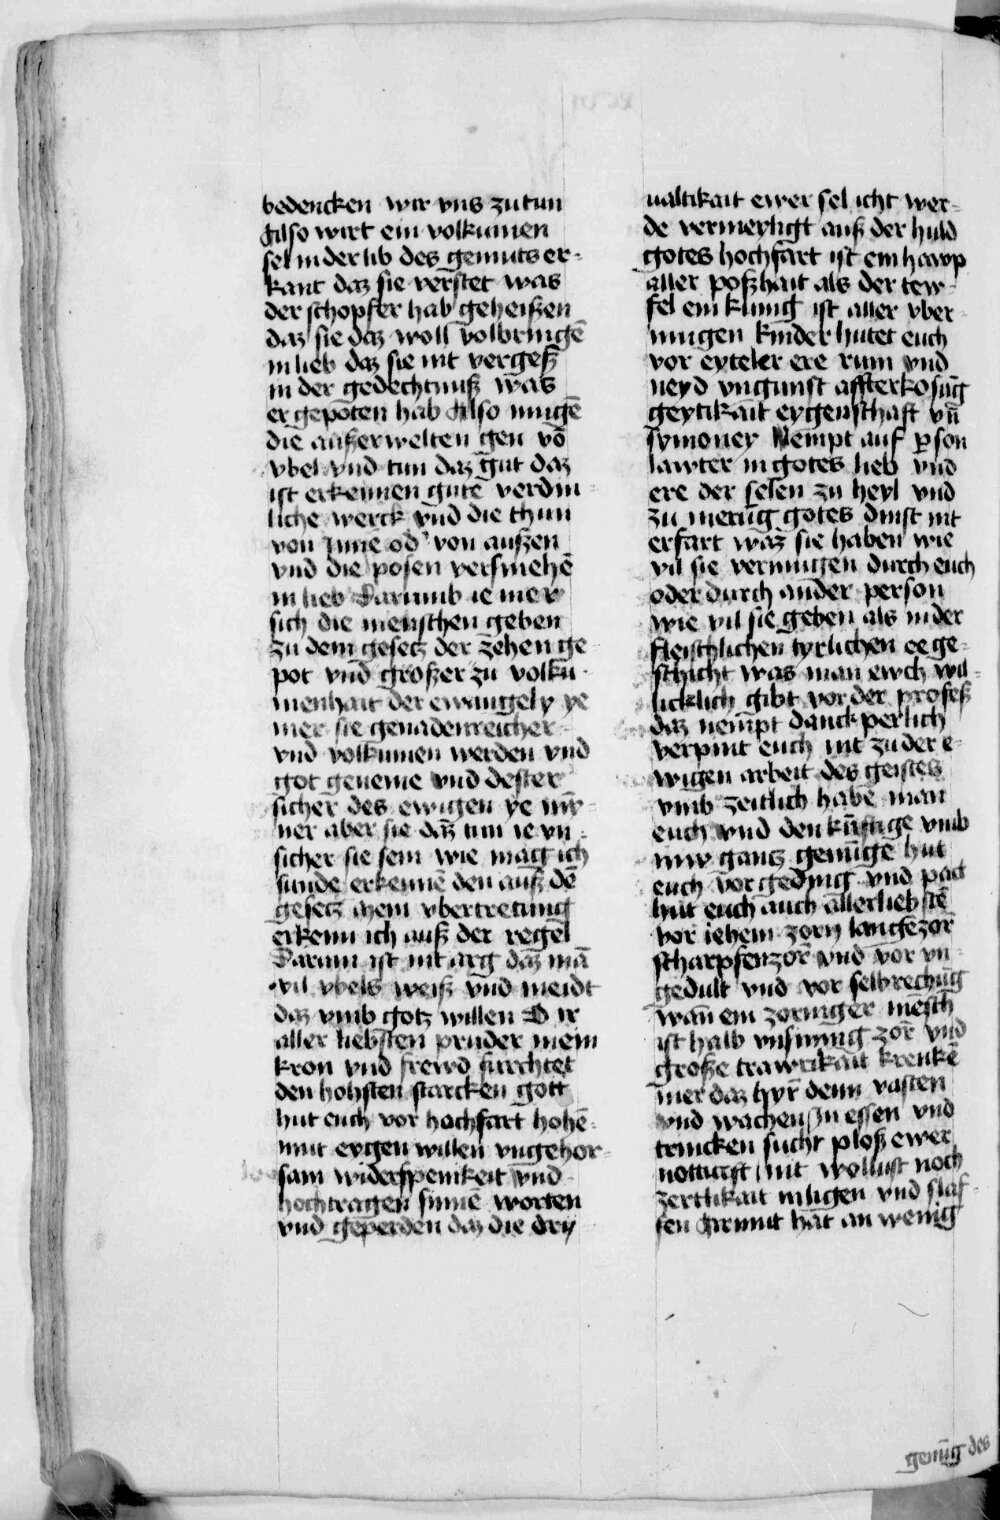 bedencken wir vns zu tun
Also wirt ein volkumen
sel in der lib des gemuts er-
kant daz sie verstet was
der schopfer hab geheißen
daz sie daz woll volbringē
in lieb daz sie nit vergeß
in der gedechtnuß was
er gepoten hab Also mugē
die außerwelten gen vō
vbel vnd tun daz gut daz
ist erkennen gute verdin-
liche werck vnd die thun
von Inne od' von außen
vnd die posen versmehē
in lieb Darumb ie mer
sich die menschen geben
zu dem gesetz der zehen ge
pot vnd großer zu volku-
menhait der ewangely ye
mer sie genadenreicher
vnd volkumen werden vnd
got geneme vnd dester
sicher des ewigen ye my-
ner aber sie daz tun ie vn-
sicher sie sein wie mag ich
sunde erkennē den auß dē
gesetz mein vbertretung
erkenn ich auß der regel
Darum ist nit arg daz mā
vil vbels weiß vnd meidt
daz vmb gotz willen Dir
aller liebsten pruder mein
kron vnd frewd furchtet
den hohsten starcken gott
hut euch vor hochfart hohē-
mut eygen willen vngehor-
sam widerspenikeit vnd
hochtragen sinnē worten
vnd geperden daz die dry
ualtikait ewer sel icht wer-
de vermeyligt auß der huld
gotes hochfart ist ein hawp
aller poßhait als der tew-
fel ein kunig ist aller vber-
mugen kinder hutet euch
vor eyteler ere rum vnd
neyd vngunst affterkosūg
geytikait eygenschaft vn̄
symoney Nempt auf p̱son
lawter in gotes lieb vnd
ere der selen zu heyl vnd
zu merūg gotes dinst nit
erfart waz sie haben wie
vil sie vermugen durch euch
oder durch ander person
wie vil sie geben als in der
fleischlichen tyrlichen ee ge-
schicht was man ewch wil-
licklich gibt vor der profeß
daz nempt danckperlich
verpint euch nit zu der e-
wigen arbeit des geistes
vmb zeitlich habē man
euch vnd den kūftige vmb
nw gantz genūge hut
euch vor geding vnd pact
hut euch auch allerliebstē
vor iehem zorn langezor̄
scharpfenzor̄ vnd vor vn-
gedult vnd vor selbrechūg
wan ein zorniger mēsch
ist halb vnsinnig zor̄ vnd
große trawrikait krenkē
mer daz hyr̄ denn vasten
vnd wachen In essen vnd
trincken sucht ploß ewer
notturft nit wollust noch
zertlikait in ligen vnd slaf-
fen Armut hat an wenig
genūg des